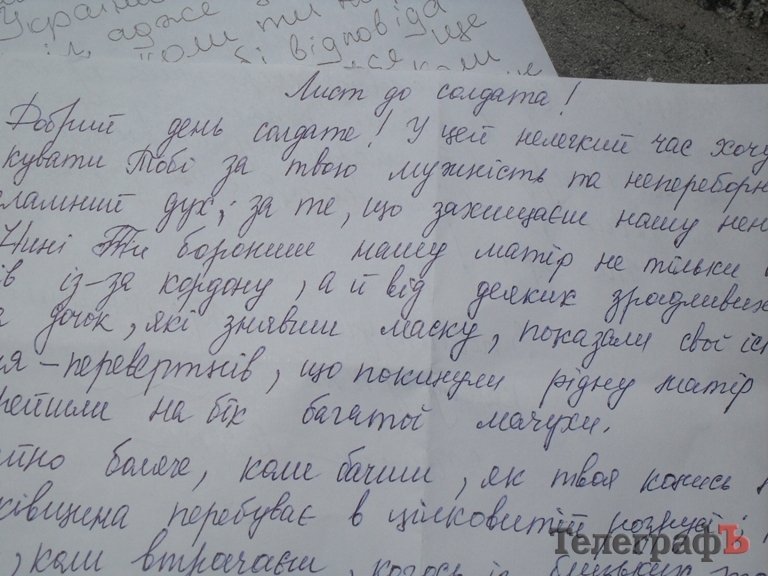 Україн
адже
коли ти
відповіда
ще
Лист до солдата!
Добрий день солдате! У цей нелегкий час хочу
кувати Тобі за твою мужність та непереборн
зламний дух, за те, що захищаєш нашу нень
Нині Ти борониш нашу матір не тільки
ів із-за кордону, а й від деяких зрадливих
а дочок, які знявши маску, показали свої іс
я-перевертнів, що покинули рідну матір
рейшли на бік багатої мачухи.
тно боляче, коли бачиш, як твоя колись
ківщина перебуває в цілковитій розрусі і
, коли втрачаєш когось із близьких
ТелеграфЪ